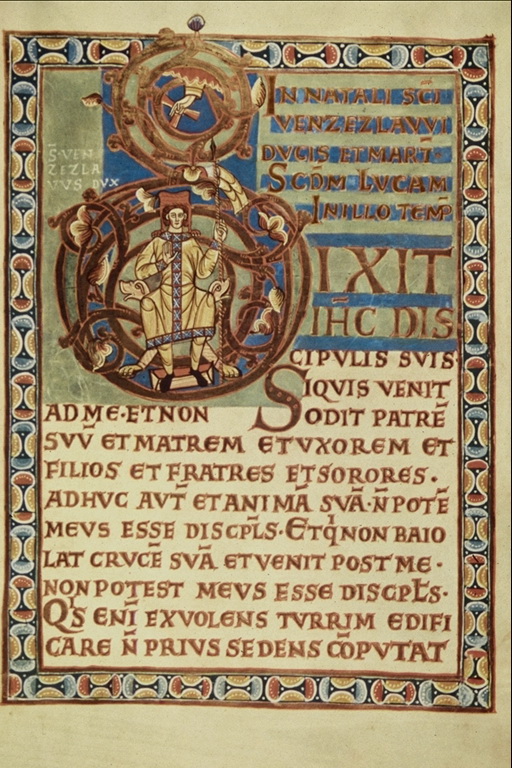 S̄·VEN
ZEZLA
VVS DVX
IN NATALI SC̄I
VENZEZLAVVI
DVCIS ET MART̄·
SCD̄M LVCAM
IN ILLO TEMP̄
DIXIT
IH̄C DIS
CIPVLIS SVIS·
SIQVIS VENIT
AD ME·ET NON ODIT PATRĒ
SVV̄ ET MATREM ET VXOREM ET
FILIOS ET FRATRES ET SORORES·
ADHVC AVT̄ ET ANIMĀ SVĀ·N̄ POTĒ
MEVS ESSE DISCPL̄S·ET Q̄ NON BAIO
LAT CRVCĒ SVĀ ET VENIT POST ME·
NON POTEST MEVS ESSE DISCPL̄S·
Q̄S ENĪ EX VOLENS TVRRIM EDIFI
CARE N̄ PRIVS SEDENS CŌPVTAT